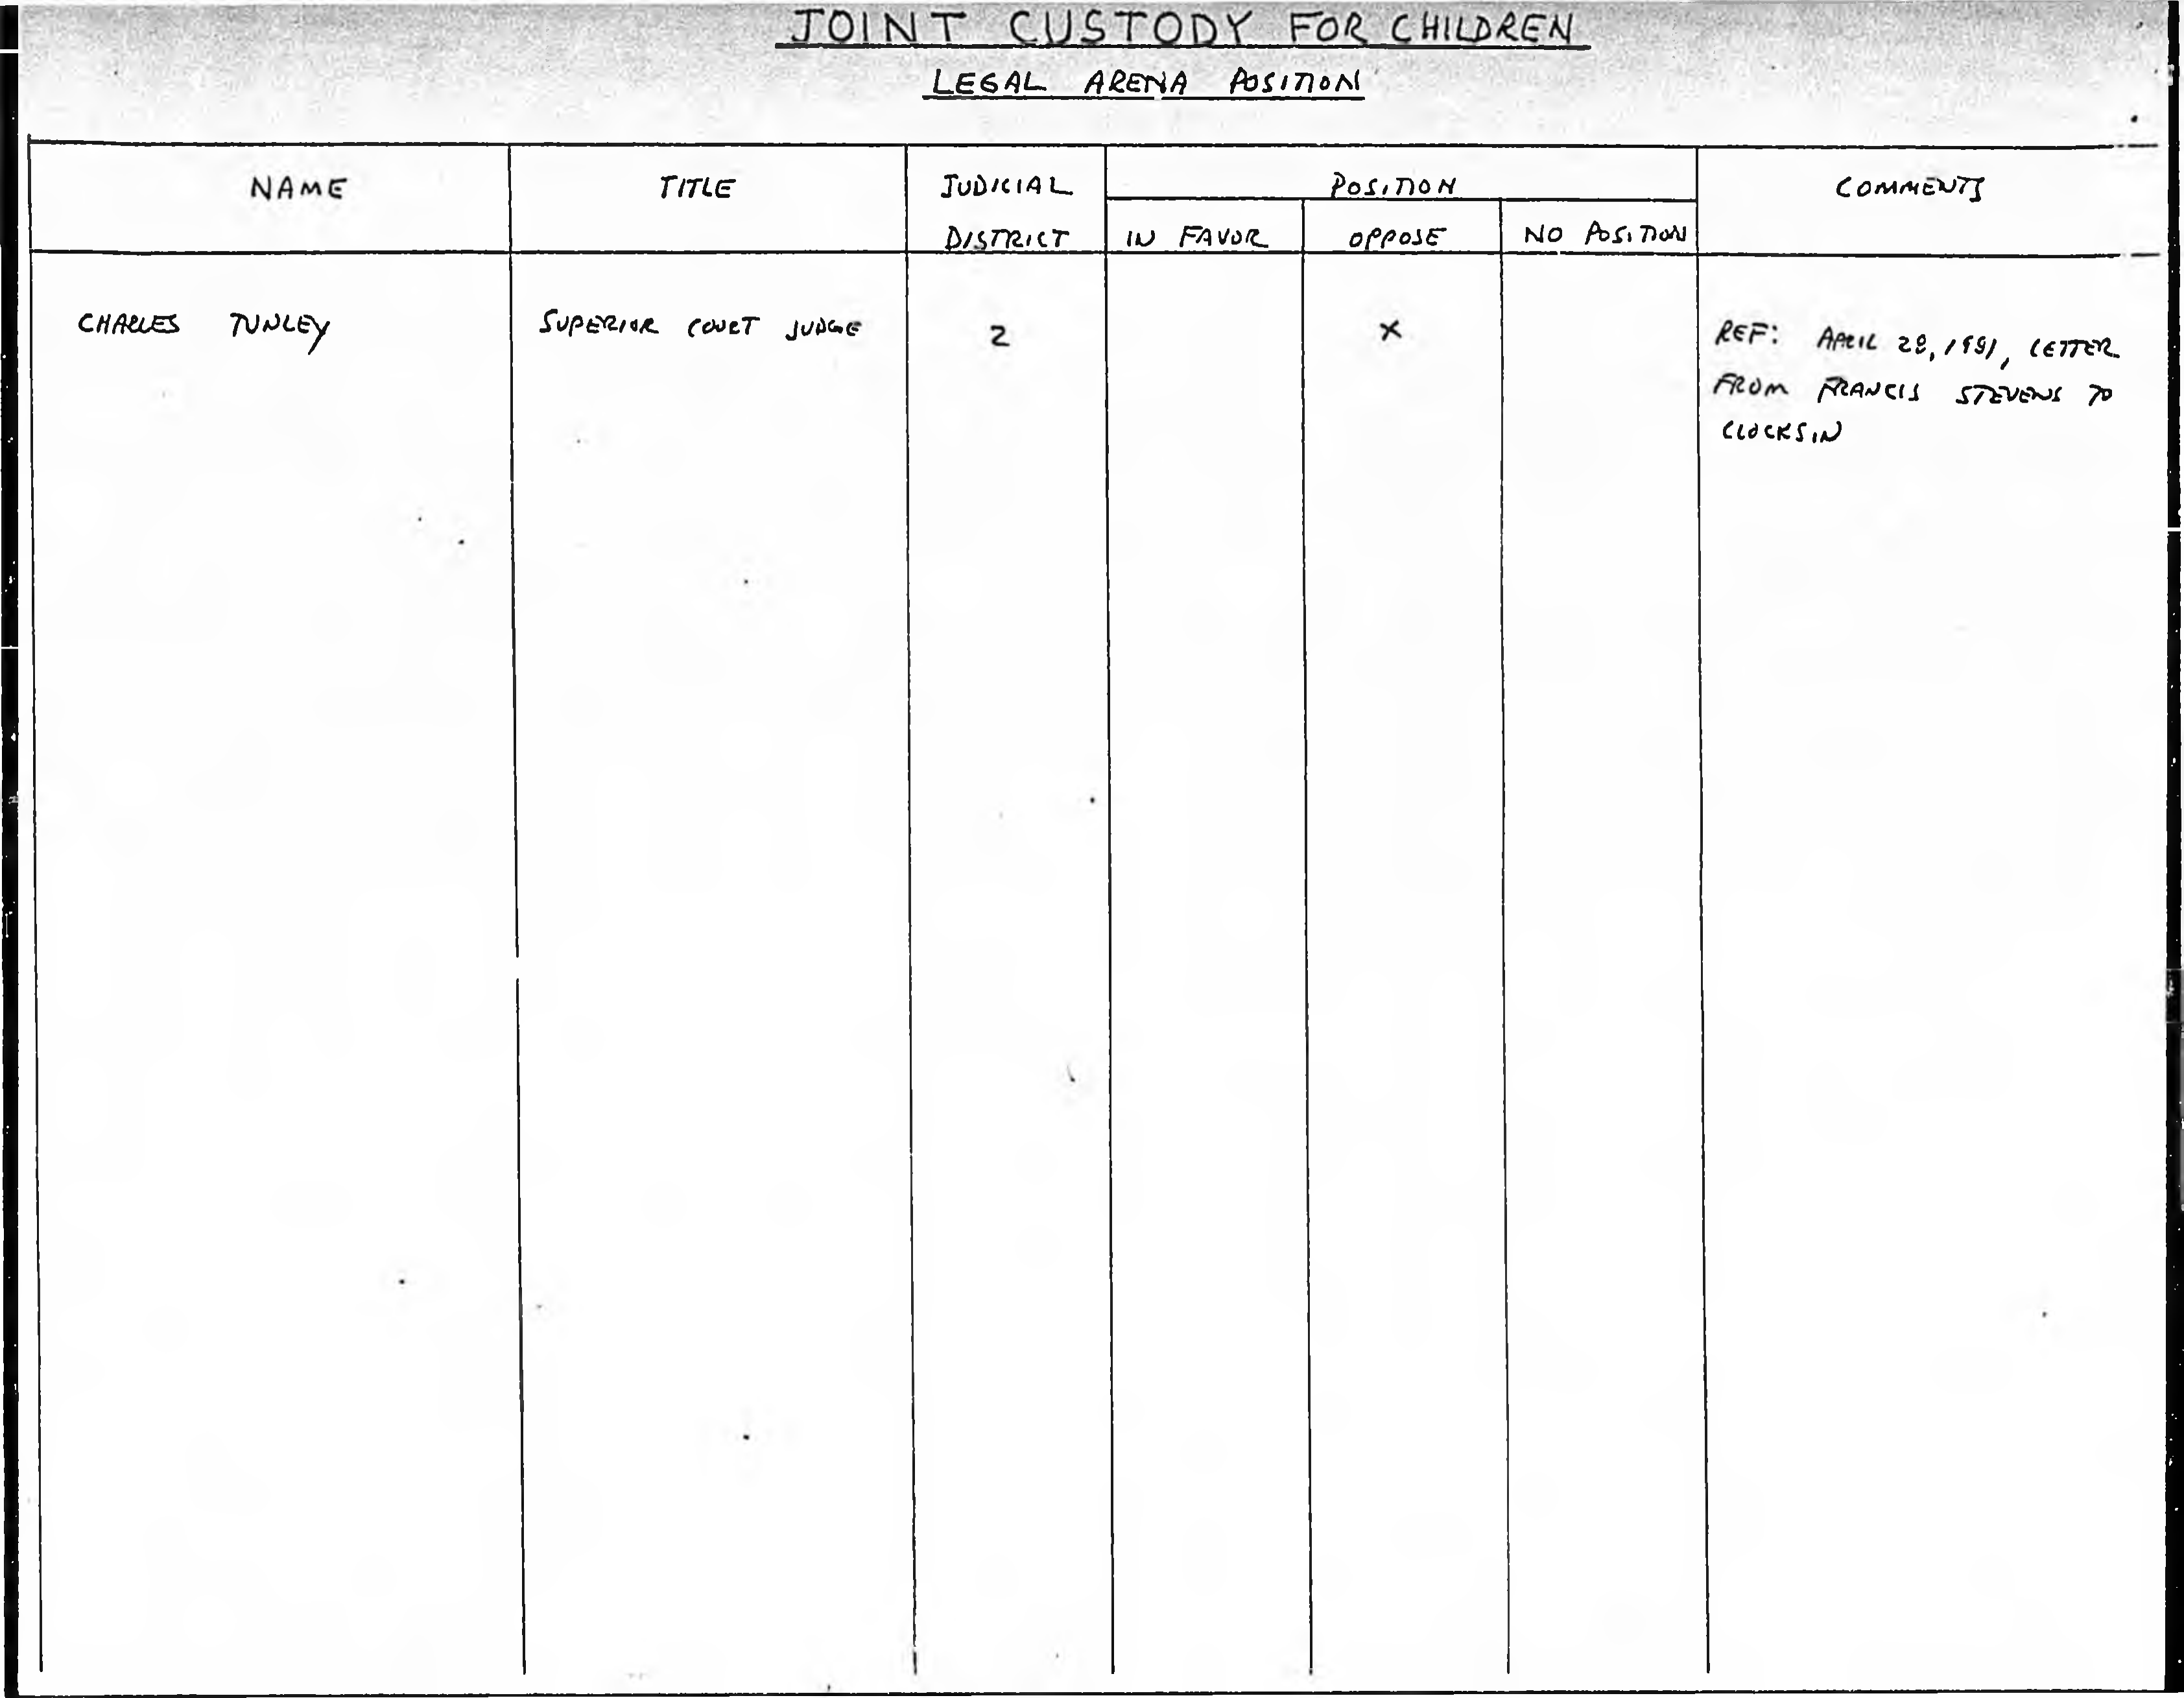 JOINT CUSTODY FOR CHILDREN
LEGAL ARENA POSITION
NAME TITLE JUDICIAL DISTRICT POSITION COMMENTS
IN FAVOR OPPOSE NO POSITION
CHARLES TUNLEY SUPERIOR COURT JUDGE 2 X REF: APRIL 28, 1981, LETTER
FROM FRANCIS STEVENS TO
CLOCKSIN